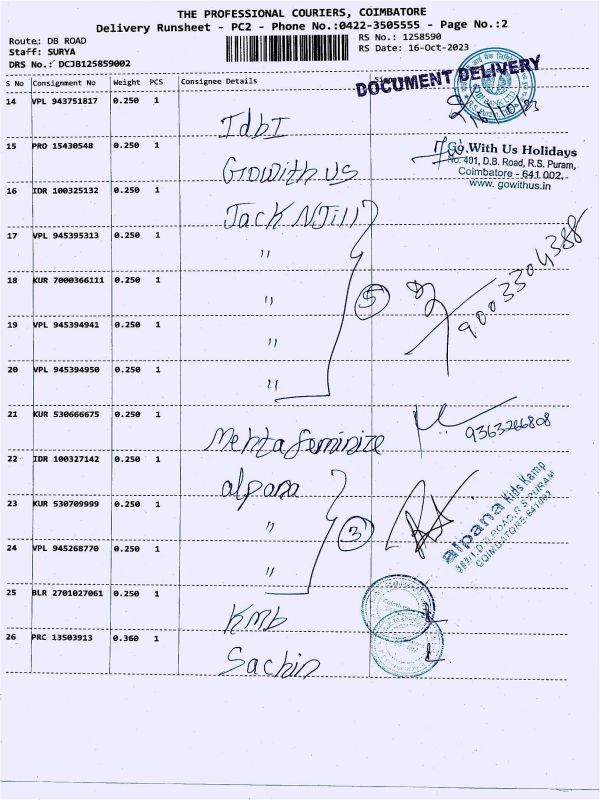 THE PROFESSIONAL COURIERS, COIMBATORE
Delivery Runsheet - PC2 - Phone No.:0422-3505555 - Page No.:2
Route: DB ROAD
Staff: SURYA
DRS No.: DCJB125859002
RS No.: 1258590
RS Date: 16-Oct-2023
S No Consignment No Weight PCS Consignee Details
DOCUMENT DELIVERY
14 VPL 943751817 0.250 1
IdbI
15 PRO 15430548 0.250 1
Gowith us
Go With Us Holidays
No. 401, D.B. Road, R.S. Puram,
Coimbatore - 641 002.
www. gowithus.in
16 IDR 100325132 0.250 1
Jack NJill
17 VPL 945395313 0.250 1
"
18 KUR 7000366111 0.250 1
"
5
9003304388
19 VPL 945394941 0.250 1
"
20 VPL 945394950 0.250 1
"
21 KUR 530666675 0.250 1
Mehta feminize
9363266808
22 IDR 100327142 0.250 1
alpana
23 KUR 530709999 0.250 1
"
3
alpana Kids Kamp
COIMBATORE-641002
24 VPL 945268770 0.250 1
"
25 BLR 2701027061 0.250 1
KMb
26 PRC 13503913 0.360 1
Sachin